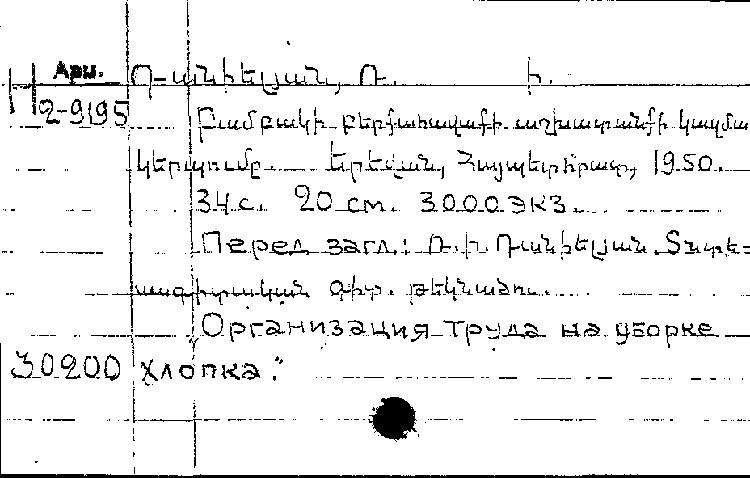 Арм. Դանիելյան, Ռ. Ի.
2-9195
Բամբակի բերքահավաքի աշխատանքի կազմա
կերպումը. Երեվան, Հայպետհրատ, 1950.
34 с. 20 см. 3000 экз.
Перед загл.: Ռ. Ի. Դանիելյան. Տնտե-
սագիտական գիտ. թեկնածու.
Организация труда на уборке
30200 хлопка."